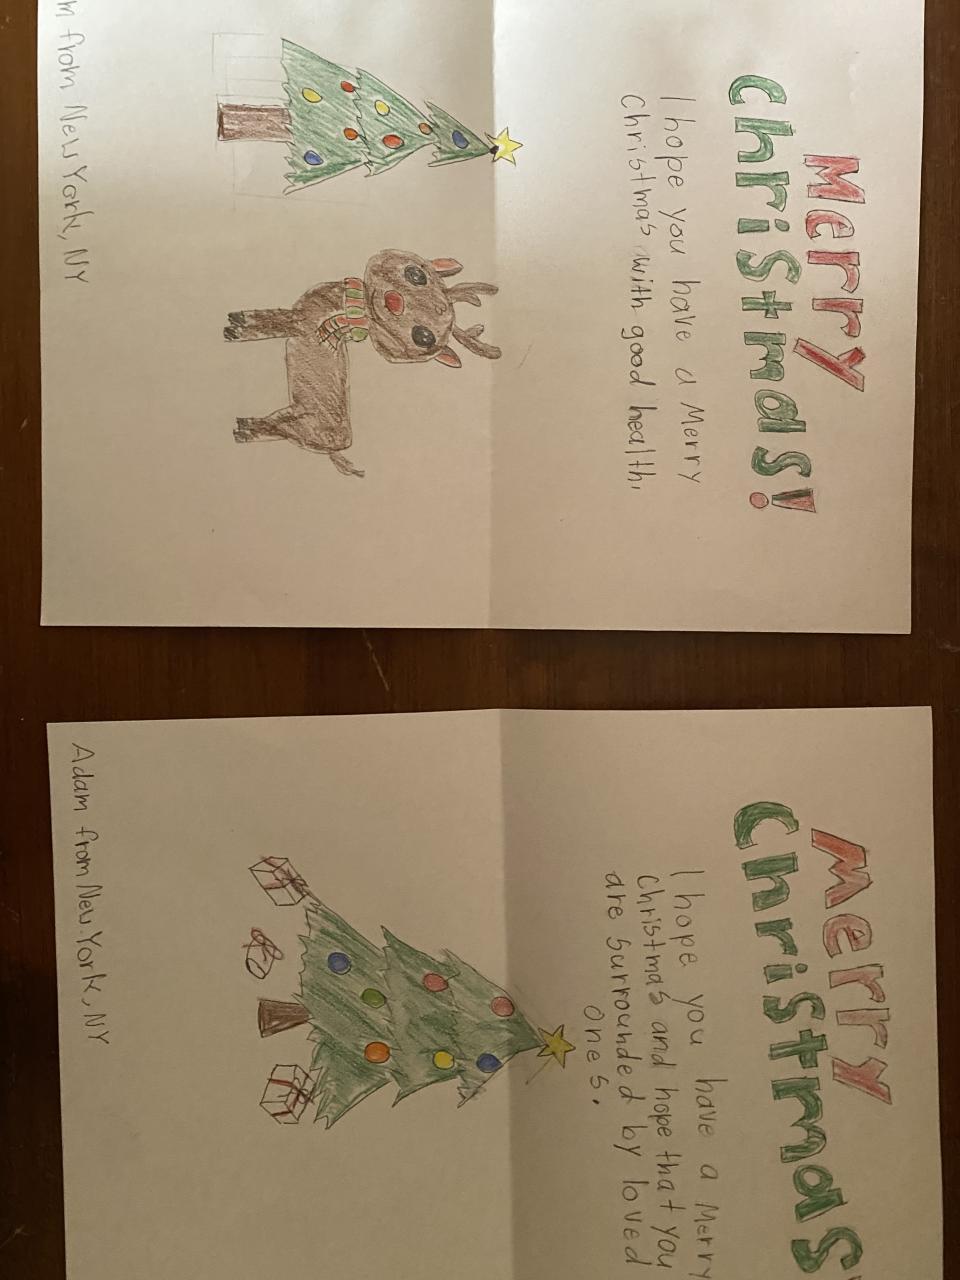 Merry
Christmas!
I hope you have a Merry
Christmas with good health.
m from New York, NY
Merry
Christmas
I hope you have a Merry
Christmas and hope that you
are surrounded by loved
ones.
Adam from New York, NY